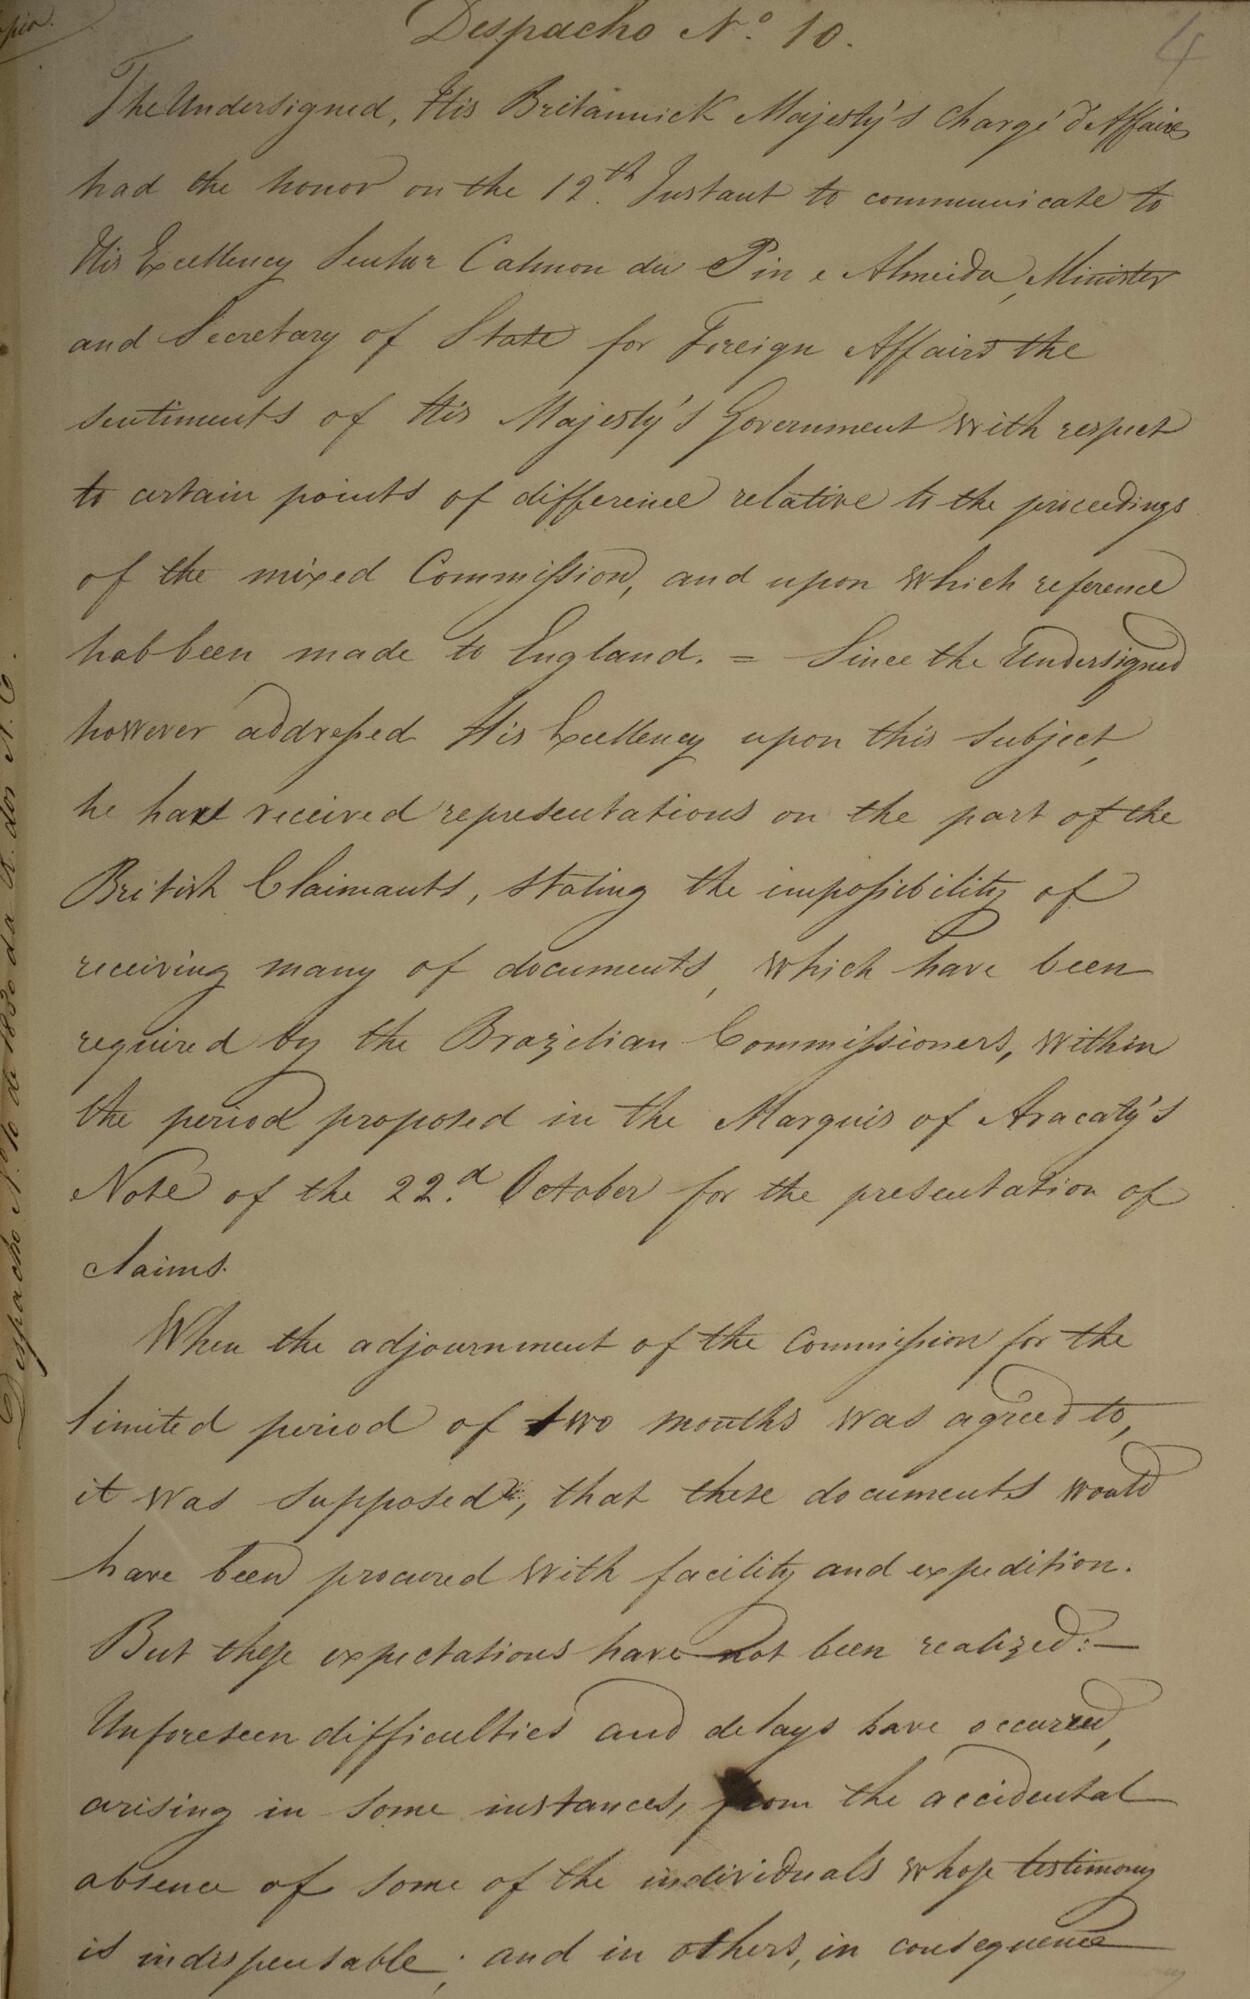 Despacho Nº 10.
4
The Undersigned, His Britannick Majesty's Chargé d'Affaires
had the honor on the 12th. Instant to communicate to
His Excellency Senhor Calmon du Pin e Almeida, Minister
and Secretary of State for Foreign Affairs the
sentiments of His Majesty's Government with respect
to certain points of difference relative to the proceedings
of the mixed Commission, and upon which reference
had been made to England. = Since the Undersigned
however addressed His Excellency upon this subject,
he has received representations on the part of the
British Claimants, stating the impossibility of
receiving many of documents, which have been
required by the Brazilian Commissioners, within
the period proposed in the Marquis of Aracaty's
Note of the 22.d October for the presentation of
claims.
When the adjournment of the Commission for the
limited period of two months was agreed to,
it was supposed, that these documents would
have been procured with facility and expedition.
But these expectations have not been realized:—
Unforeseen difficulties and delays have occurred,
arising in some instances, from the accidental
absence of some of the individuals whose testimony
is indispensable; and in others, in consequence
Despacho Nº 10 de 1830 da R. dos N. E.